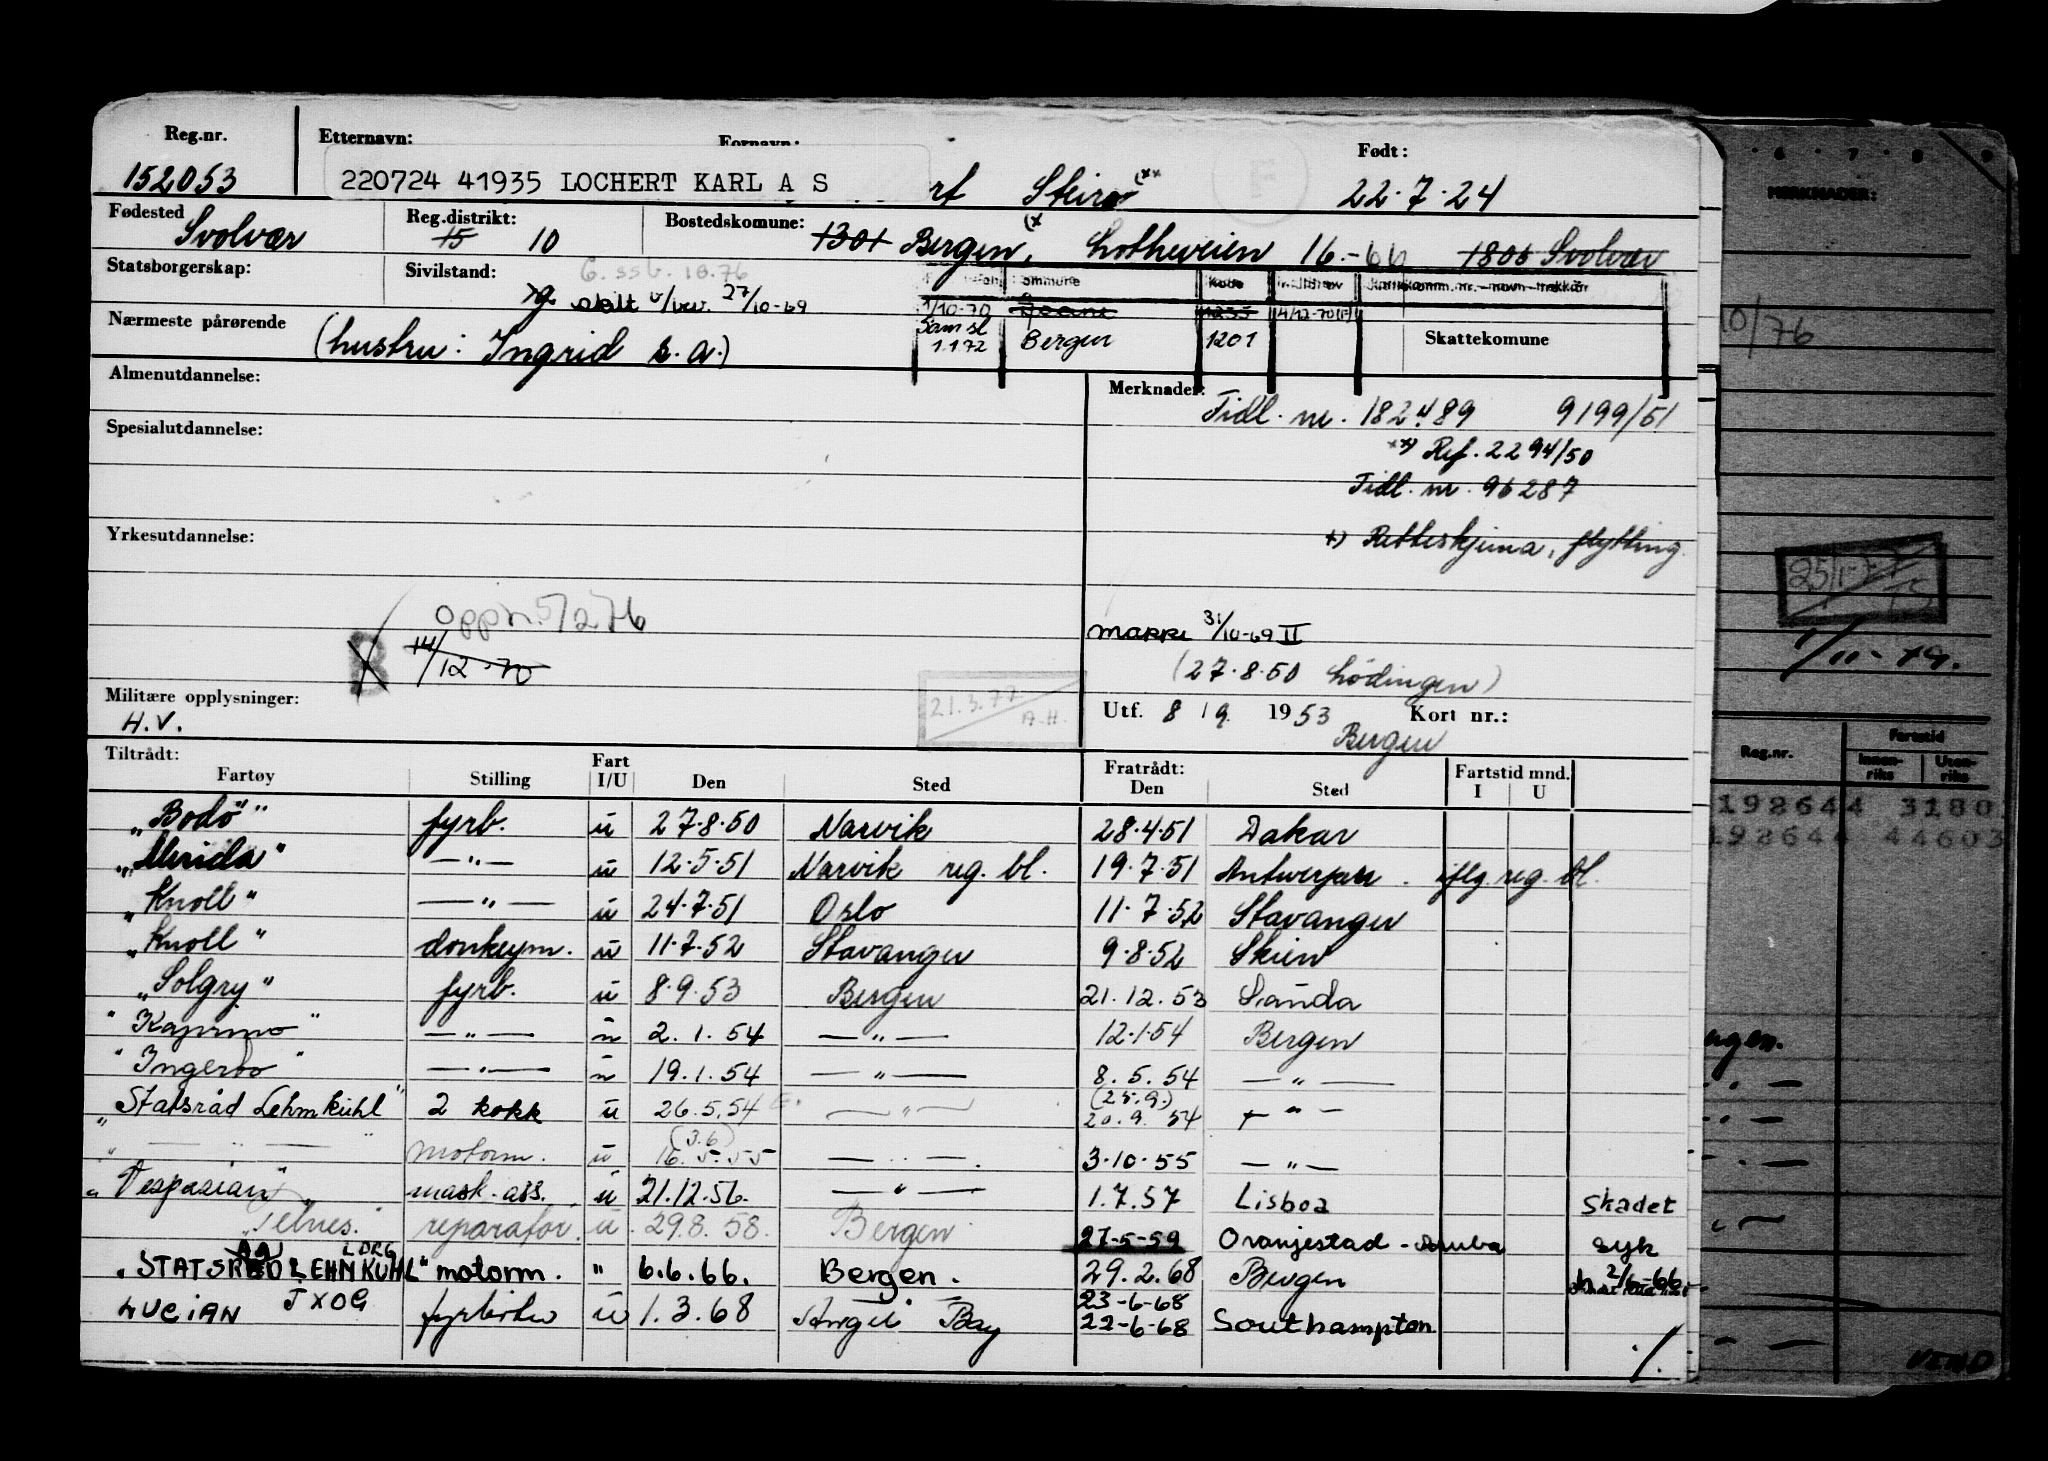 Reg.nr. Etternavn: Fornavn: Født:
152053 220724 41935 LOCHERT KARL A S 22.7.24
F
Fødested Reg.distrikt: Bostedskomune:
Svolvær 15 10 1301 Bergen, Lotheveien 16.-66 1805 Svolvær
Statsborgerskap: Sivilstand: G. ssb. 10.76
27/10-69
Kommune Kode
1/10-70 1255 4/12-70
Nærmeste pårørende Sam.sl 1.1.72 Bergen 1201 Skattekomune
(hustru: Ingrid s.a.)
Almenutdannelse: Merknader:
Tidl. nr. 182489 9199/51
Spesialutdannelse:
xx) Ref. 2294/50
Tidl. nr. 96287
Yrkesutdannelse:
x) Retteskjema, flytting.
Oppr. 5/2 76
B 14/12-70
31/10-69 II
(27.8.50 Lödingen)
Militære opplysninger: 21.3.77 A.H.
H.V.
Utf. 8/9 1953 Kort nr.:
Bergen
Tiltrådt: Fratrådt:
Fartøy Stilling Fart I/U Den Sted Den Sted Fartstid mnd. I U
"Bodö" fyrb. u 27.8.50 Narvik 28.4.51 Dakar
"Merida" —"— u 12.5.51 Narvik reg. bl. 19.7.51 Antwerpen. iflg. reg. bl.
"Knoll" —"— u 24.7.51 Oslo 11.7.52 Stavanger
"Knoll" donkeym. u 11.7.52 Stavanger 9.8.52 Skien
"Solgry" fyrb. u 8.9.53 Bergen 21.12.53 Sauda
—"— u 2.1.54 —"— 12.1.54 Bergen
"Ingerto" —"— u 19.1.54 —"— 8.5.54 —"—
"Statsråd Lehmkuhl" 2 kokk u 26.5.54 —"— (25.9.) 20.9.54 —"—
" — " — " motorm. u (3.6) 16.5.55 —"— 3.10.55 —"—
"Vespasian" mask.ass. u 21.12.56. —"— 1.7.57 Lisboa Skadet
"Telnes." reparatör. u 29.8.58. Bergen 27-5-59 Oranjestad-Aruba syk
"STATSRAAD LEHMKUHL" LDRG motorm. " 6.6.66. Bergen. 29.2.68 Bergen 2/6-66
LUCIAN JXOG fyrböter u 1.3.68 Angle Bay 23-6-68 22-6-68 Southampton
./.
6 7 8 9
MERKNADER:
10/76
25/1-77
1/11-79.
Reg.nr. Fartstid
Innenriks Utenriks
192644 3180
192644 44603
VEND